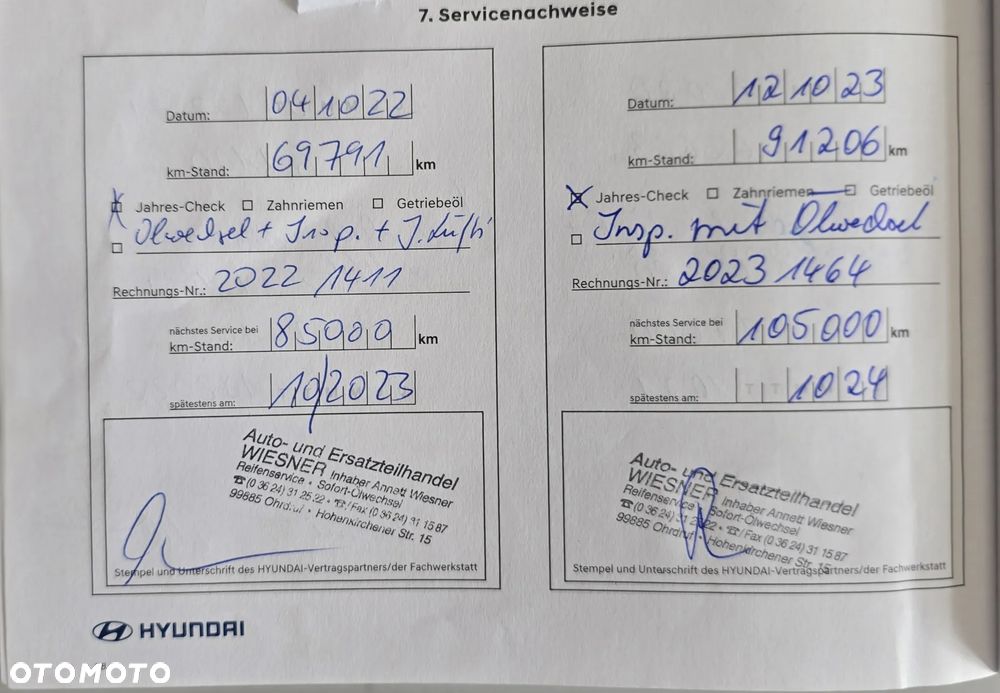 7. Servicenachweise
Datum: 04 10 22
km-Stand: 69791 km
Jahres-Check Zahnriemen Getriebeöl
Ölwechsel + Insp. +
Rechnungs-Nr.: 2022 1411
nächstes Service bei
km-Stand: 85000 km
spätestens am: 10/2023
Auto- und Ersatzteilhandel
WIESNER Inhaber Annett Wiesner
Reifenservice • Sofort-Ölwechsel
☎ (0 36 24) 31 25 22 • ☎/Fax (0 36 24) 31 15 87
99885 Ohrdruf • Hohenkirchener Str. 15
Stempel und Unterschrift des HYUNDAI-Vertragspartners/der Fachwerkstatt
Datum: 12 10 23
km-Stand: 91206 km
Jahres-Check Zahnriemen Getriebeöl
Insp. mit Ölwechsel
Rechnungs-Nr.: 2023 1464
nächstes Service bei
km-Stand: 105000 km
spätestens am: T T 10 24
Auto- und Ersatzteilhandel
WIESNER Inhaber Annett Wiesner
Reifenservice • Sofort-Ölwechsel
☎ (0 36 24) 31 25 22 • ☎/Fax (0 36 24) 31 15 87
99885 Ohrdruf • Hohenkirchener Str. 15
Stempel und Unterschrift des HYUNDAI-Vertragspartners/der Fachwerkstatt
HYUNDAI
OTOMOTO